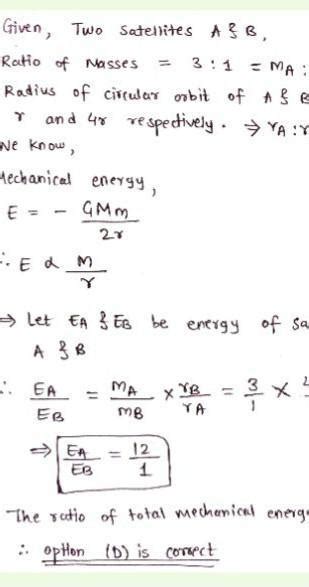 Given, Two Satellites A & B,
Ratio of Masses = 3 : 1 = MA :
Radius of circular orbit of A & B
r and 4r respectively. ⇒ rA :
We know,
Mechanical energy,
E = - GMm / 2r
∴ E α M / r
⇒ Let EA & EB be energy of Sa
A & B
∴ EA / EB = MA / MB × rB / rA = 3 / 1 ×
⇒ EA / EB = 12 / 1
The ratio of total mechanical energy
∴ option (D) is correct